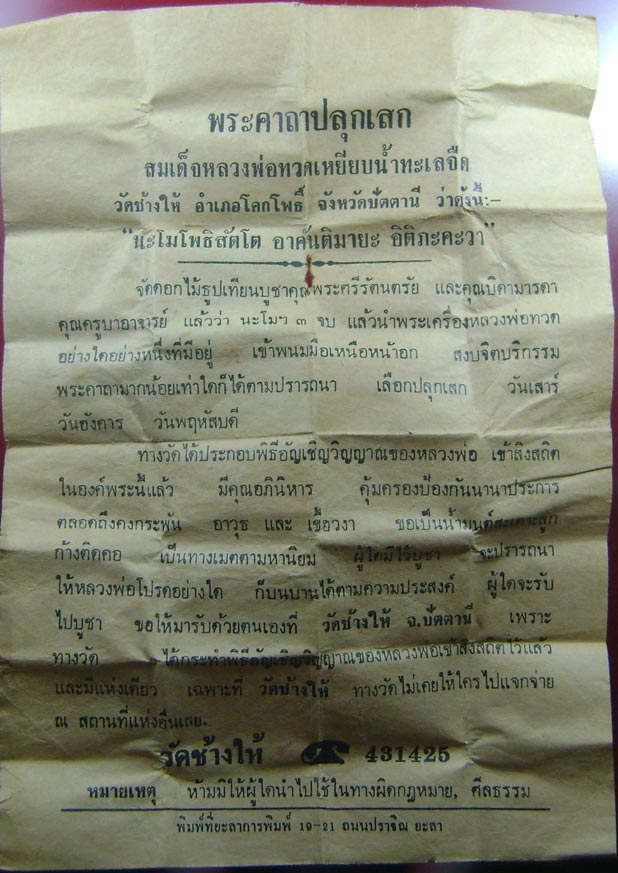 พระคาถาปลุกเสก
สมเด็จหลวงพ่อทวดเหยียบน้ำทะเลจืด
วัดช้างให้ อำเภอโคกโพธิ์ จังหวัดปัตตานี ว่าดังนี้:-
"นะโมโพธิสัตโต อาคันติมายะ อิติภะคะวา"
จัดดอกไม้ธูปเทียนบูชาคุณพระศรีรัตนตรัย และคุณบิดามารดา
คุณครูบาอาจารย์ แล้วว่า นะโมฯ ๓ จบ แล้วนำพระเครื่องหลวงพ่อทวด
อย่างใดอย่างหนึ่งที่มีอยู่ เข้าพนมมือเหนือหน้าอก สงบจิตบริกรรม
พระคาถามากน้อยเท่าใดก็ได้ตามปรารถนา เลือกปลุกเสก วันเสาร์
วันอังคาร วันพฤหัสบดี
ทางวัดได้ประกอบพิธีอัญเชิญวิญญาณของหลวงพ่อ เข้าสิงสถิต
ในองค์พระนี้แล้ว มีคุณอภินิหาร คุ้มครองป้องกันนานาประการ
ตลอดถึงคงกระพัน อาวุธ และ เขี้ยวงา ขอเป็นน้ำมนต์สะเดาะลูก
ก้างติดคอ เป็นทางเมตตามหานิยม ผู้ใดมีไว้บูชา จะปรารถนา
ให้หลวงพ่อโปรดอย่างใด ก็บนบานได้ตามความประสงค์ ผู้ใดจะรับ
ไปบูชา ขอให้มารับด้วยตนเองที่ วัดช้างให้ จ.ปัตตานี เพราะ
ทางวัด ได้กระทำพิธีอัญเชิญวิญญาณของหลวงพ่อเข้าสิงสถิตไว้แล้ว
และมีแห่งเดียว เฉพาะที่ วัดช้างให้ ทางวัดไม่เคยให้ใครไปแจกจ่าย
ณ สถานที่แห่งอื่นเลย.
วัดช้างให้ ☎ 431425
หมายเหตุ ห้ามมิให้ผู้ใดนำไปใช้ในทางผิดกฎหมาย, ศีลธรรม
พิมพ์ที่ยะลาการพิมพ์ 19-21 ถนนปราจิณ ยะลา